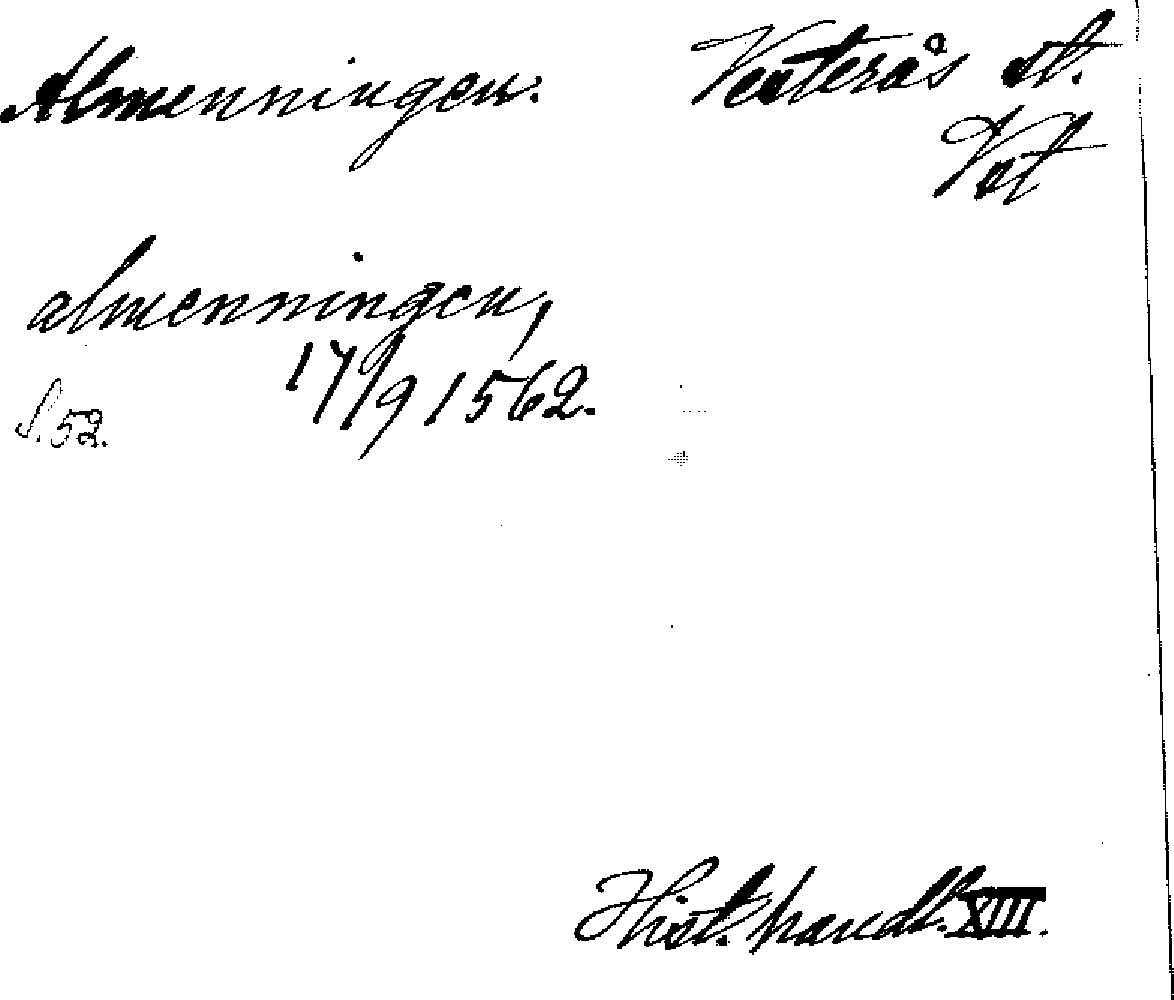 Almenningen. Vesterås st.
Vst
almenningen,
17/9 1562.
S. 52.
Hist. handl. XIII.